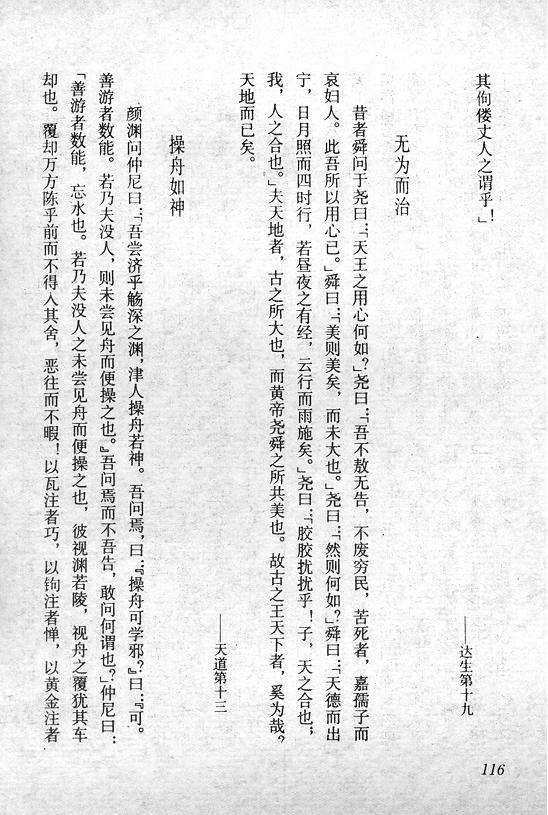 其佝偻丈人之谓乎！」
——达生第十九
无为而治
昔者舜问于尧曰：「天王之用心何如？」尧曰：「吾不敖无告，不废穷民，苦死者，嘉孺子而
哀妇人。此吾所以用心已。」舜曰：「美则美矣，而未大也。」尧曰：「然则何如？」舜曰：「天德而出
宁，日月照而四时行，若昼夜之有经，云行而雨施矣。」尧曰：「胶胶扰扰乎！子，天之合也；
我，人之合也。」夫天地者，古之所大也，而黄帝尧舜之所共美也。故古之王天下者，奚为哉？
天地而已矣。
——天道第十三
操舟如神
颜渊问仲尼曰：「吾尝济乎觞深之渊，津人操舟若神。吾问焉，曰：『操舟可学邪？』曰：『可。
善游者数能。若乃夫没人，则未尝见舟而便操之也。』吾问焉而不吾告，敢问何谓也？」仲尼曰：
「善游者数能，忘水也。若乃夫没人之未尝见舟而便操之也，彼视渊若陵，视舟之覆犹其车
却也。覆却万方陈乎前而不得入其舍，恶往而不暇！以瓦注者巧，以钩注者惮，以黄金注者
116